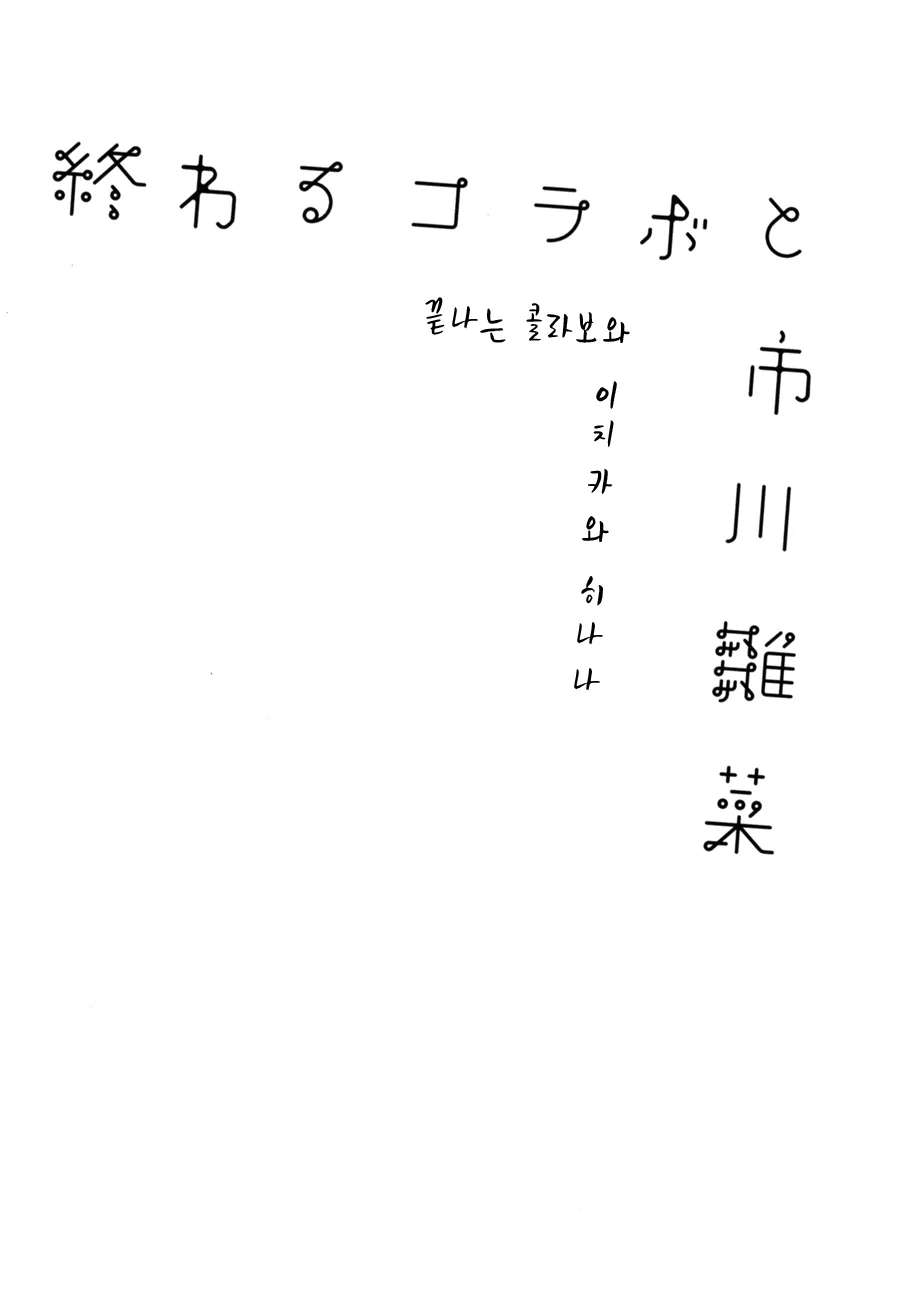 終わるコラボと
市川雛菜
끝나는 콜라보와
이치카와 히나나